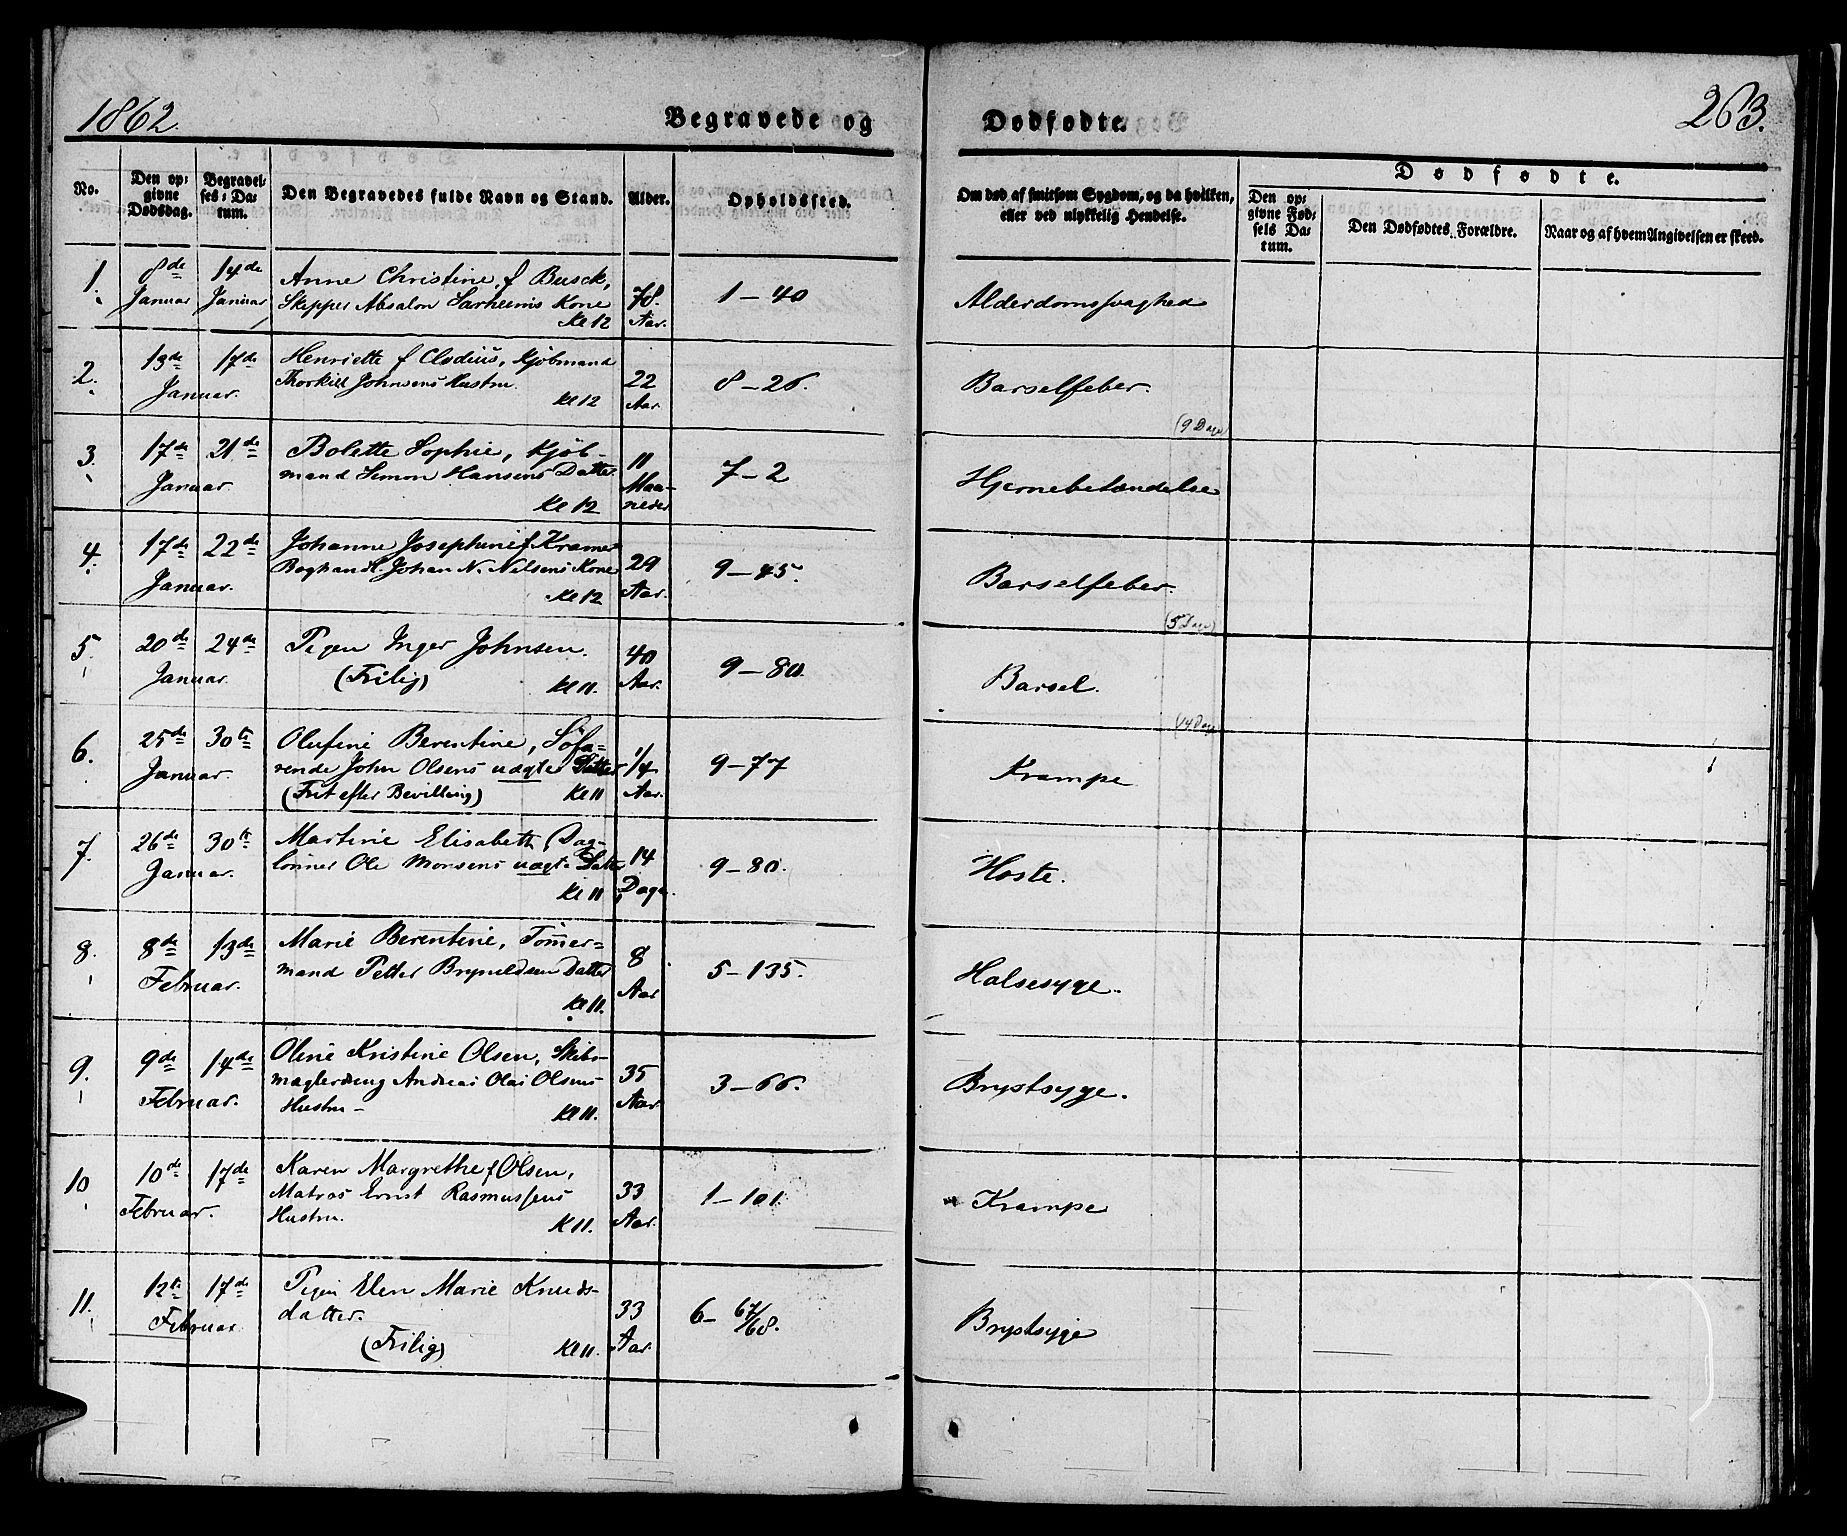 1862.
Begravede og
Dødfødte.
263.
No.
Den opgivne Dødsdag.
Begravelses-Datum.
Den Begravedes fulde Navn og Stand.
Alder.
Opholdssted.
Om død af smitsom Sygdom, og da hvilken, eller ved ulykkelig Hendelse.
Dødfødte.
Den opgivne Fødsels Datum.
Den Dødfødtes Forældre.
Naar og af hvem Angivelsen er skeed.
1. 8de Januar 14de Januar
Anne Christine f Busck,
Skipper Absalon Sarheims Kone
Kl 12
78. Aar.
1 – 40
Alderdomssvaghed
2. 13de 17de Januar.
Henriette f Clodius, Kjöbmand
Thorkild Johnsens Hustru.
Kl 12
22 Aar.
8 – 26.
Barselfeber.
(9 Dage)
3. 17de 21de Januar.
Bolette Sophie, Kjöb-
mand Simon Hansens Datter
Kl 12
11 Maa-
neder
7 – 2
Hjernebetændelse
4. 17de 22de Januar.
Johanne Josephine f Kramer
Boghandl. Johan N. Nilsens Kone
Kl 12
29 Aar.
9 – 45.
Barselfeber.
(5 Dage)
5. 20de 24de Januar.
Pigen Inger Johnsen.
(Frilig) Kl 11.
40 Aar.
9 – 80.
Barsel.
(14 Dage
6. 25de 30te Januar.
Olufine Berentine, Söfa-
rende John Olsens uægte Datter
(Frit efter Bevilling) Kl 11
1/4 Aar.
9 – 77
Krampe
7. 26de 30te Januar.
Martine Elisabeth, Dag-
lönner Ole Monsens uægte Datter
Kl 11
14 Dage.
9 – 80.
Hoste.
8. 8de 13de Februar.
Marie Berentine, Tömer-
mand Petter Brynildsen Datter
Kl 11.
8 Aar
5 – 135.
Halsesyge.
9. 9de 14de Februar.
Oline Kristine Olsen, Skibs-
mæglerdreng Andreas Olai Olsens
Hustru – Kl 11.
35 Aar.
3 – 66.
Brystsyge.
10 10de 17de Februar.
Karen Margrethe f Olsen,
Matros Ernst Rasmussens
Hustru. Kl 11.
33 Aar.
1 – 101.
Krampe
11. 12te 17de Februar.
Pigen Elen Marie Knuds-
datter.
(Frilig) Kl 11.
33 Aar.
6 – 67/68.
Brystsyge